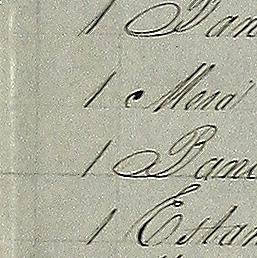 1 Ban
1 Mesa
1 Banc
1 Estan